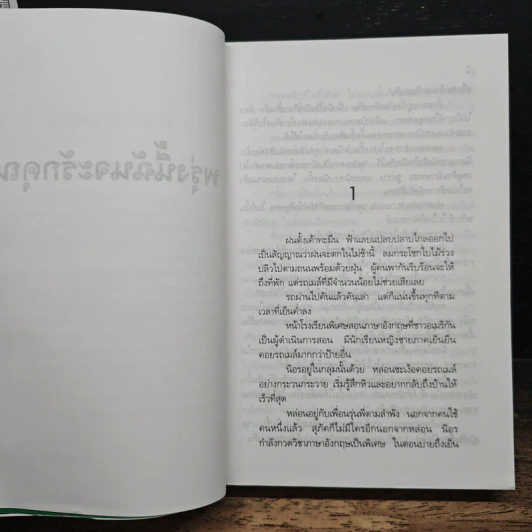 พรุ่งนี้ฉันจะรักคุณ
1
ฝนตั้งเค้าทะมึน ฟ้าแลบแปลบปลาบไกลออกไป
เป็นสัญญาณว่าฝนจะตกในไม่ช้านี้ ลมกระโชกใบไม้ร่วง
ปลิวไปตามถนนพร้อมด้วยฝุ่น ผู้คนพากันรีบร้อนจะให้
ถึงที่พัก แต่รถเมล์ที่มีจำนวนน้อยไม่ช่วยเสียเลย
รถผ่านไปคันแล้วคันเล่า แต่ก็แน่นขึ้นทุกทีตาม
เวลาที่เย็นค่ำลง
หน้าโรงเรียนพิเศษสอนภาษาอังกฤษที่ชาวอเมริกัน
เป็นผู้ดำเนินการสอน มีนักเรียนหญิงชายภาคเย็นยืน
คอยรถเมล์มากกว่าป้ายอื่น
นิอรอยู่ในกลุ่มนั้นด้วย หล่อนชะเง้อคอยรถเมล์
อย่างกระวนกระวาย เริ่มรู้สึกหิวและอยากกลับถึงบ้านให้
เร็วที่สุด
หล่อนอยู่กับเพื่อนรุ่นพี่ตามลำพัง นอกจากคนใช้
คนหนึ่งแล้ว สุภัคก็ไม่มีใครอีกนอกจากหล่อน นิอร
กำลังกวดวิชาภาษาอังกฤษเป็นพิเศษ ในตอนบ่ายถึงเย็น